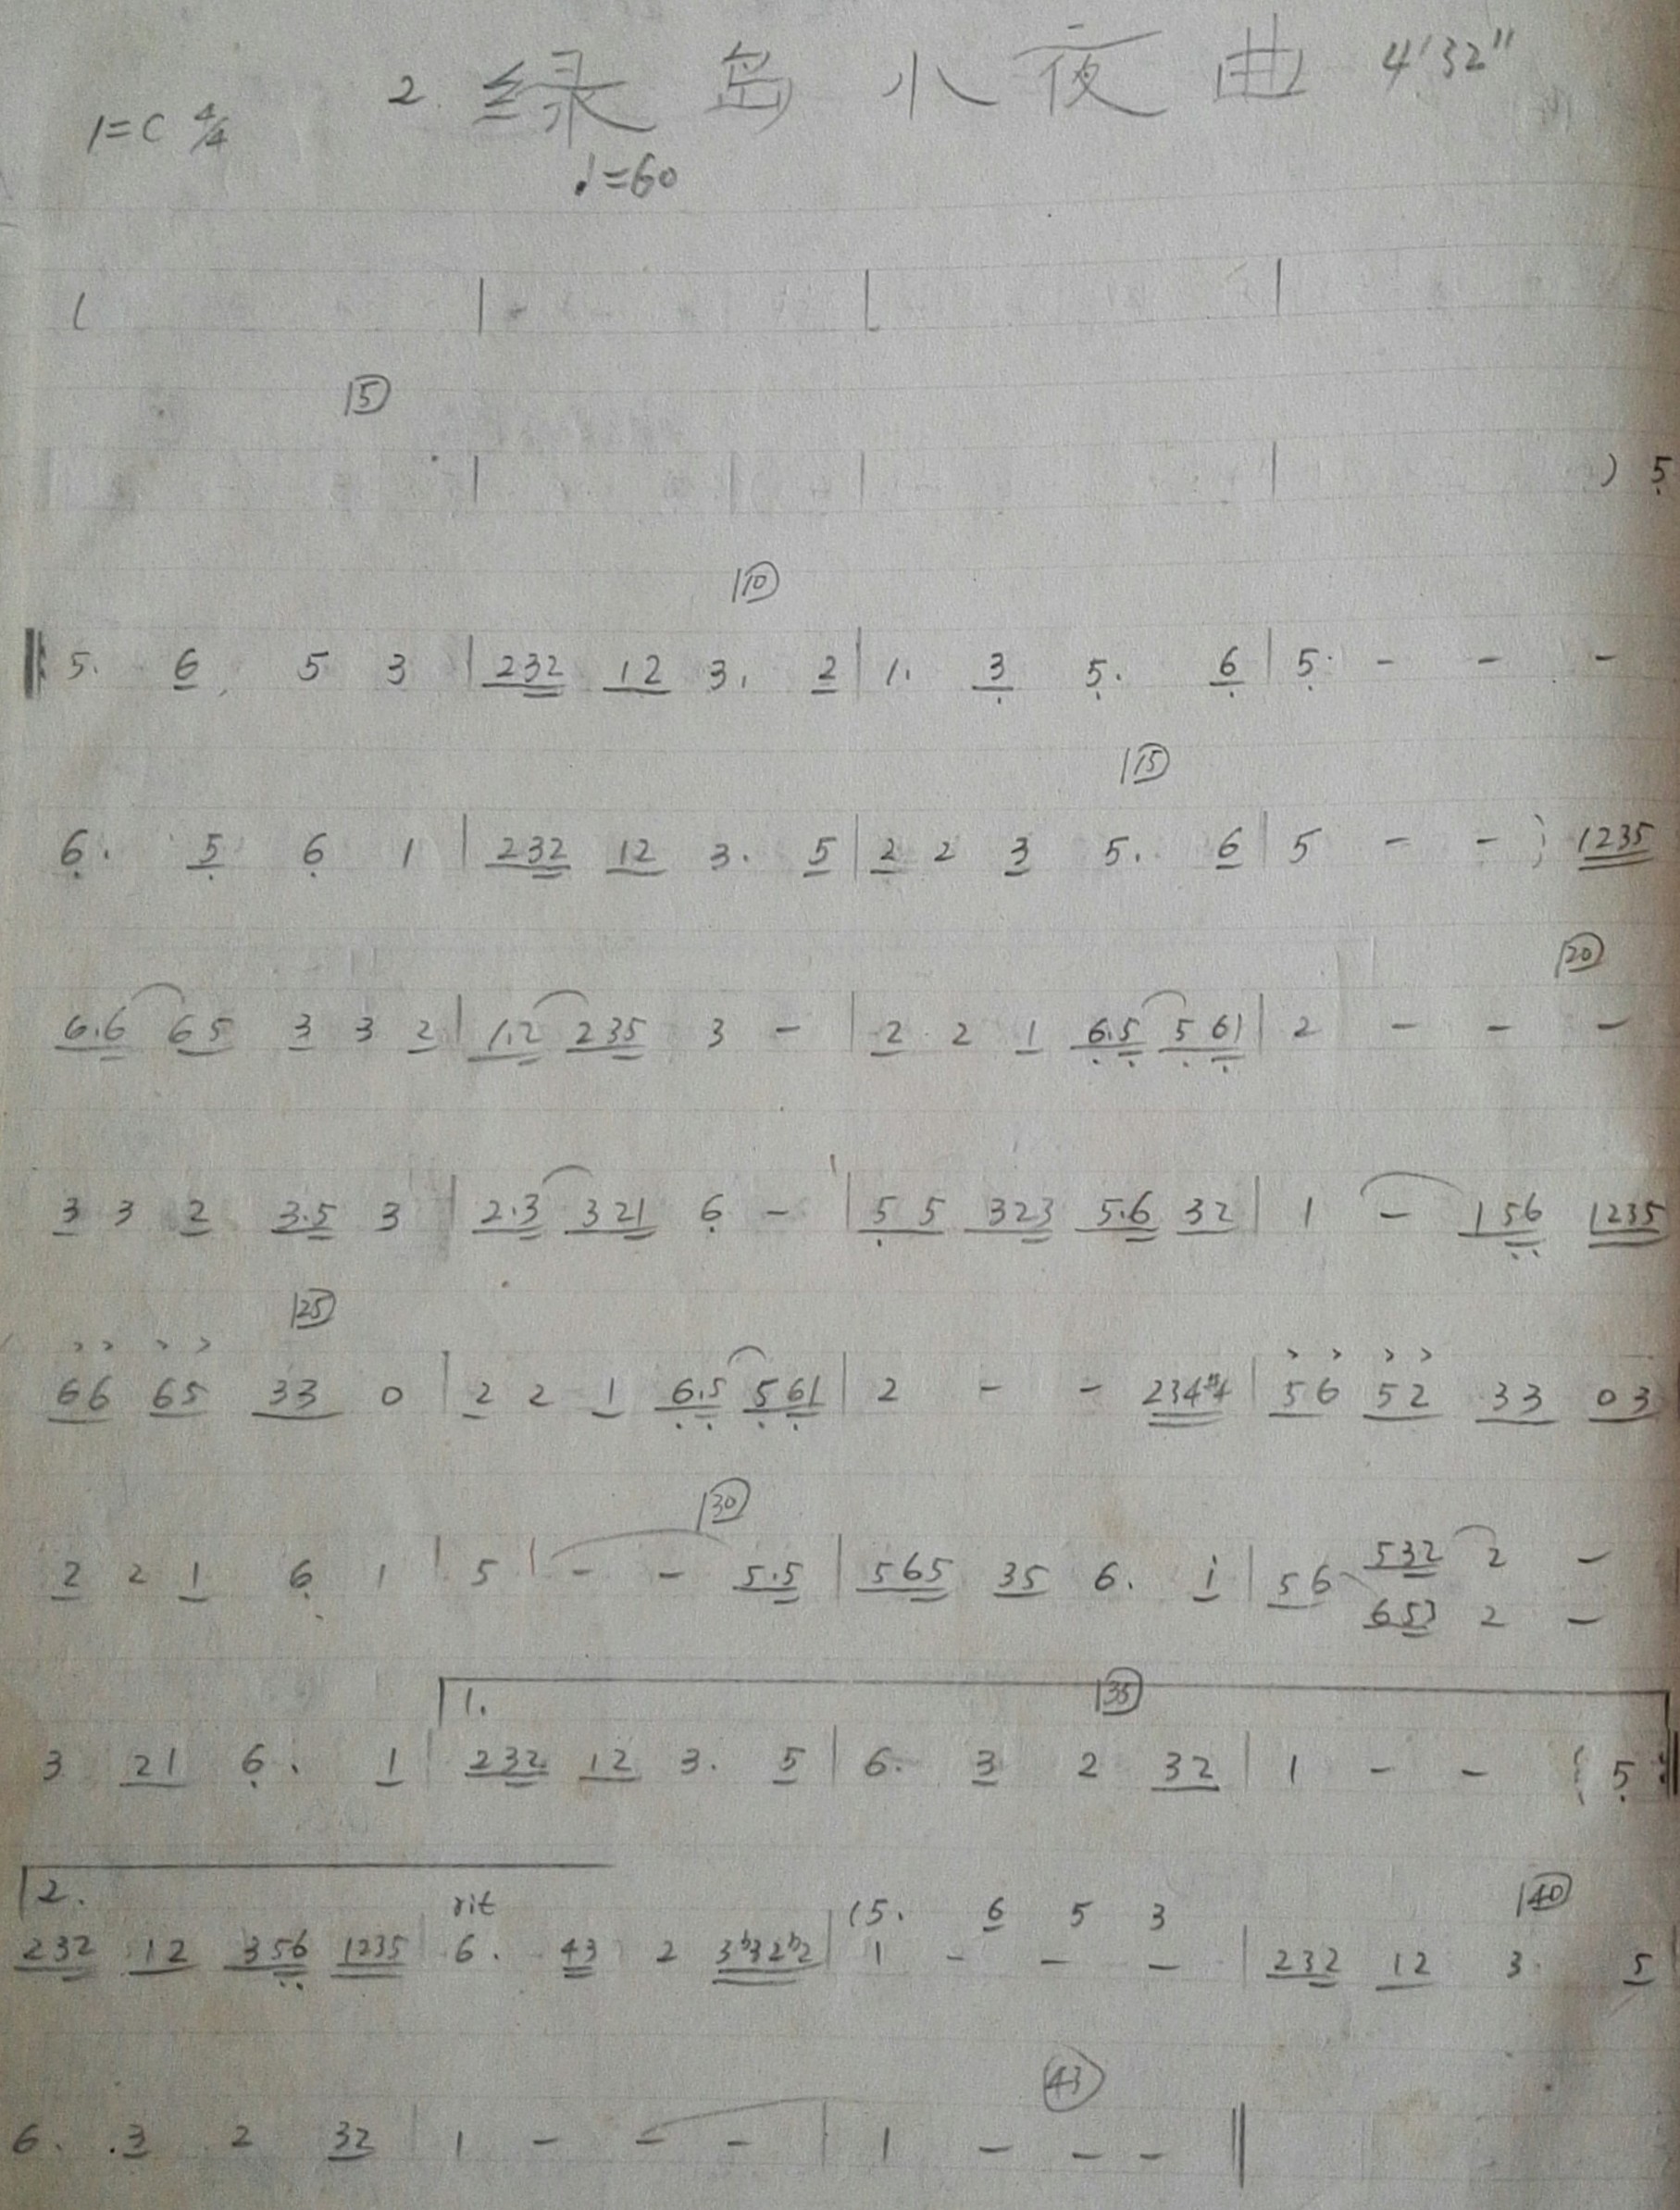 2. 绿岛小夜曲 4'32"
1=C 4/4
♩=60
( | | |
⑤
| | | ) 5
⑩
‖: 5. 6 5 3 | 232 12 3. 2 | 1. 3 5. 6 | 5 - - -
⑮
6. 5 6 1 | 232 12 3. 5 | 2 2 3 5. 6 | 5 - - 1235
⑳
6.6 65 3 3 2 | 1.2 235 3 - | 2 2 1 6.5 561 | 2 - - -
3 3 2 3.5 3 | 2.3 321 6 - | 5 5 323 5.6 32 | 1 - 156 1235
㉕
> > > > > > > >
66 65 33 0 | 2 2 1 6.5 561 | 2 - - 234#4 | 56 52 33 03
㉚
2 2 1 6 1 | 5 - - 5.5 | 565 35 6. i | 56 532 2 -
653 2 -
1. ㉟
3 21 6. 1 | 232 12 3. 5 | 6. 3 2 32 | 1 - - 5 :‖
2. rit (5. 6 5 3 ㊵
232 12 356 1235 | 6. 43 2 3♭32♭2 | 1 - - - | 232 12 3. 5
㊸
6. 3 2 32 | 1 - - - | 1 - - - ‖